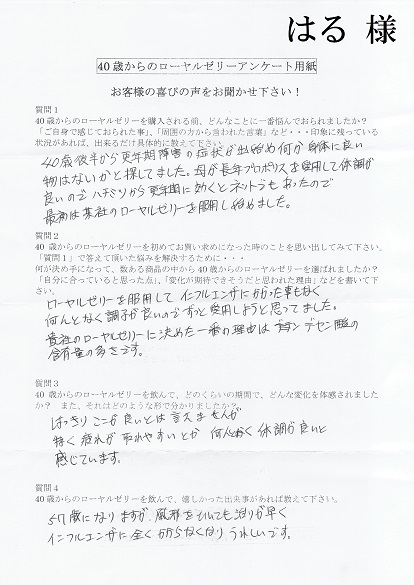 はる 様
40歳からのローヤルゼリーアンケート用紙
お客様の喜びの声をお聞かせ下さい！
質問１
40歳からのローヤルゼリーを購入される前、どんなことに一番悩んでおられましたか？
「ご自身で感じておられた事」、「周囲の方から言われた言葉」など・・・印象に残っている
状況があれば、出来るだけ具体的に教えて下さい。
40歳後半から更年期障害の症状が出始め何か身体に良い
物はないかと探してました。母が長年プロポリスを愛用して体調が
良いのでハチミツから更年期に効くとネットでもあったので
最初は某社のローヤルゼリーを服用し始めました。
質問２
40歳からのローヤルゼリーを初めてお買い求めになった時のことを思い出してみて下さい。
「質問１」で答えて頂いた悩みを解決するために・・・
何が決め手になって、数ある商品の中から40歳からのローヤルゼリーを選ばれましたか？
「自分に合っていると思った点」、「変化が期待できそうだと思われた理由」などを書いて下
さい。
ローヤルゼリーを服用して インフルエンザにかかった事もなく
何んとなく調子が良いのでずっと愛用しようと思ってました。
貴社のローヤルゼリーに決めた一番の理由は デセン酸の
含有量の多さです。
質問３
40歳からのローヤルゼリーを飲んで、どのくらいの期間で、どんな変化を体感されました
か？ また、それはどのような形で分かりましたか？
はっきりここが良いとは言えませんが
特く疲れが取れやすいとか 何んとなく体調が良いと
感じています。
質問４
40歳からのローヤルゼリーを飲んで、嬉しかった出来事があれば教えて下さい。
57歳になりますが、風邪をひいても治りが早く
インフルエンザに全くかからなくなり うれしいです。